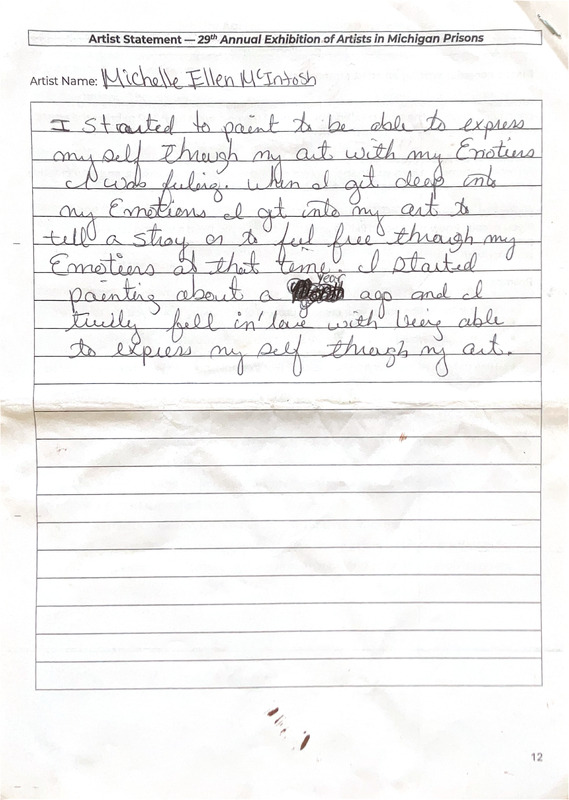 Artist Statement — 29th Annual Exhibition of Artists in Michigan Prisons
Artist Name: Michelle Ellen McIntosh
I Started to paint to be able to express
my self through my art with my Emotions
I was feeling. when I get deep into
my Emotions I get into my art to
tell a stroy or to feel free through my
Emotions at that time. I started
painting about a year ago and I
truily fell in love with being able
to express my self through my art.
12